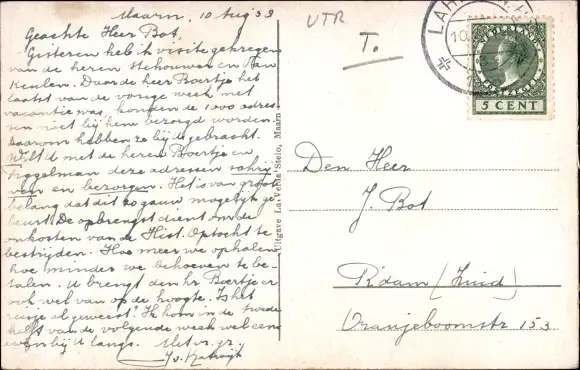 Maarn, 10 Aug 33
Geachte Heer Bot,
Gisteren heb ik visite gekregen
van de heren Stehouwer en Van
Keulen. Daar de heer Boertje het
laatst van de vorige week met
vacantie was, konden de 1000 adres-
sen niet bij hem bezorgd worden
daarom hebben ze bij U gebracht.
Wilt U met de heren Boertje en
deze adressen schrij
ven en bezorgen. Het is van groot
belang dat dit zo gauw mogelijk ge-
beurt. De opbrengst dient om de
onkosten van de Hist. Optocht te
bestrijden. Hoe meer we ophalen
hoe minder we behoeven te be-
talen. U brengt den hr. Boertje er
ook wel van op de hoogte. Is het
reisje al geweest? Ik kom in de tweede
helft van de volgende week wel eens
even bij U langs. Met vr. gr.
Uitgave La Verda Stelo, Maarn
UTR
T.
LA
10
NEDERLAND
5 CENT
Den Heer
J. Bot
R'dam (Zuid)
Oranjeboomstr 153